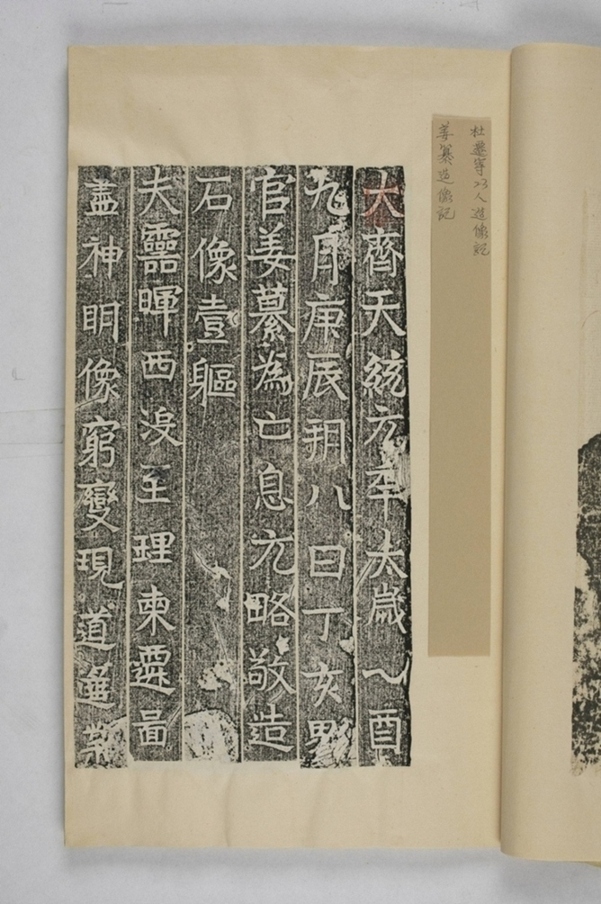 杜遷等23人造像記
姜纂造像記
大齊天統元年太歲乙酉
九月庚辰朔八日丁亥
官姜纂為亡息元略敬造
石像壹軀
夫靈暉西沒至理東遷啚
盡神明像窮變現道遍